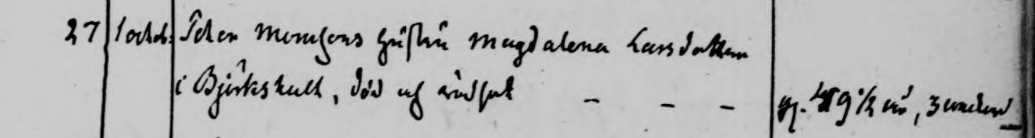 27 1 octob: Peter Monsons hustru Magdalena Larsdotter
i Björkhult, död af rödsot - - - g. 49 1/2 år, 3 veckor